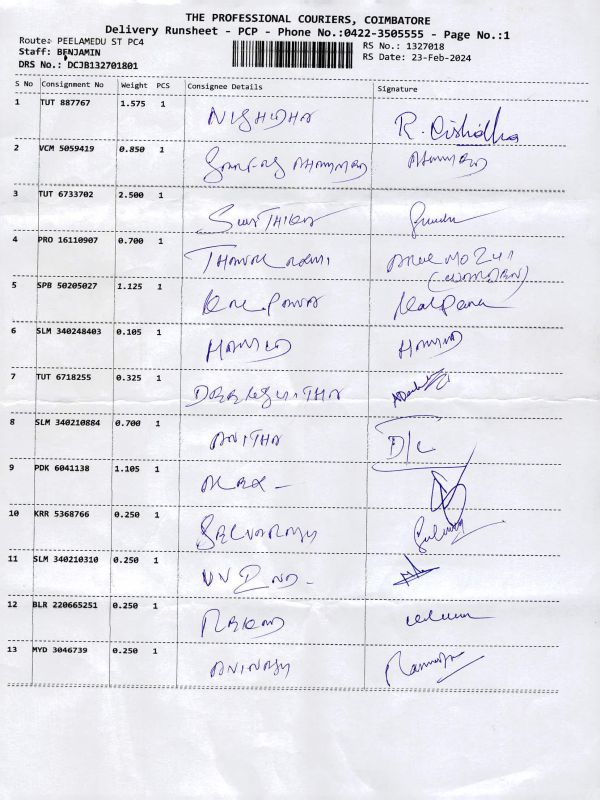 THE PROFESSIONAL COURIERS, COIMBATORE
Delivery Runsheet - PCP - Phone No.:0422-3505555 - Page No.:1
Route: PEELAMEDU ST PC4
RS No.: 1327018
Staff: BENJAMIN
RS Date: 23-Feb-2024
DRS No.: DCJB132701801
S No Consignment No Weight PCS Consignee Details Signature
1 TUT 887767 1.575 1 NISHIDHA R. Nishidha
2 VCM 5059419 0.850 1
3 TUT 6733702 2.500 1
4 PRO 16110907 0.700 1
5 SPB 50205027 1.125 1 Kalpana
6 SLM 340248403 0.105 1 HAMEED HAMEED
7 TUT 6718255 0.325 1
8 SLM 340210884 0.700 1 ANITHA D/C
9 PDK 6041138 1.105 1 ALEX
10 KRR 5368766 0.250 1 SELVARAJ
11 SLM 340210310 0.250 1
12 BLR 220665251 0.250 1
13 MYD 3046739 0.250 1 AVINASH